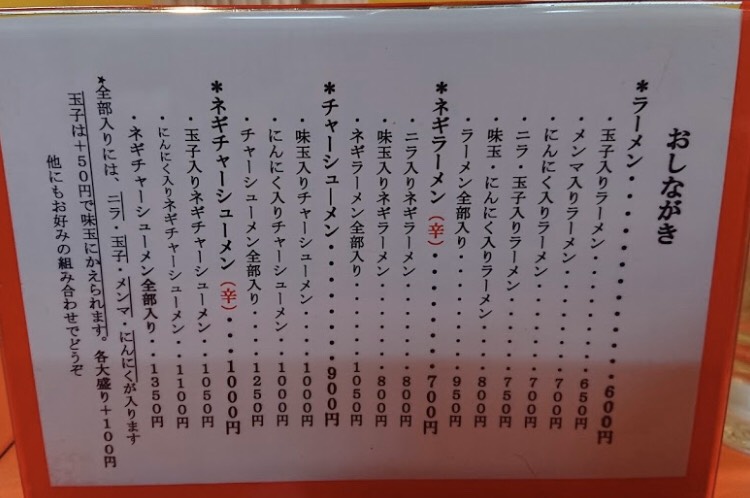 おしながき
*ラーメン・・・・・・・・・・・・600円
・玉子入りラーメン・・・・・・・650円
・メンマ入りラーメン・・・・・・700円
・にんにく入りラーメン・・・・・700円
・ニラ・玉子入りラーメン・・・・750円
・味玉・にんにく入りラーメン・・・800円
・ラーメン全部入り・・・・・・・950円
*ネギラーメン(辛)・・・・・・・700円
・ニラ入りネギラーメン・・・・・800円
・味玉入りネギラーメン・・・・・800円
・ネギラーメン全部入り・・・・・1050円
*チャーシューメン・・・・・・・・900円
・味玉入りチャーシューメン・・・・1000円
・にんにく入りチャーシューメン・・・1000円
・チャーシューメン全部入り・・・・1250円
*ネギチャーシューメン(辛)・・・1000円
・玉子入りネギチャーシューメン・・・1050円
・にんにく入りネギチャーシューメン・・1100円
・ネギチャーシューメン全部入り・・1350円
*全部入りには、ニラ・玉子・メンマ・にんにくが入ります
玉子は+50円で味玉にかえられます。各大盛り+100円
他にもお好みの組み合わせでどうぞ